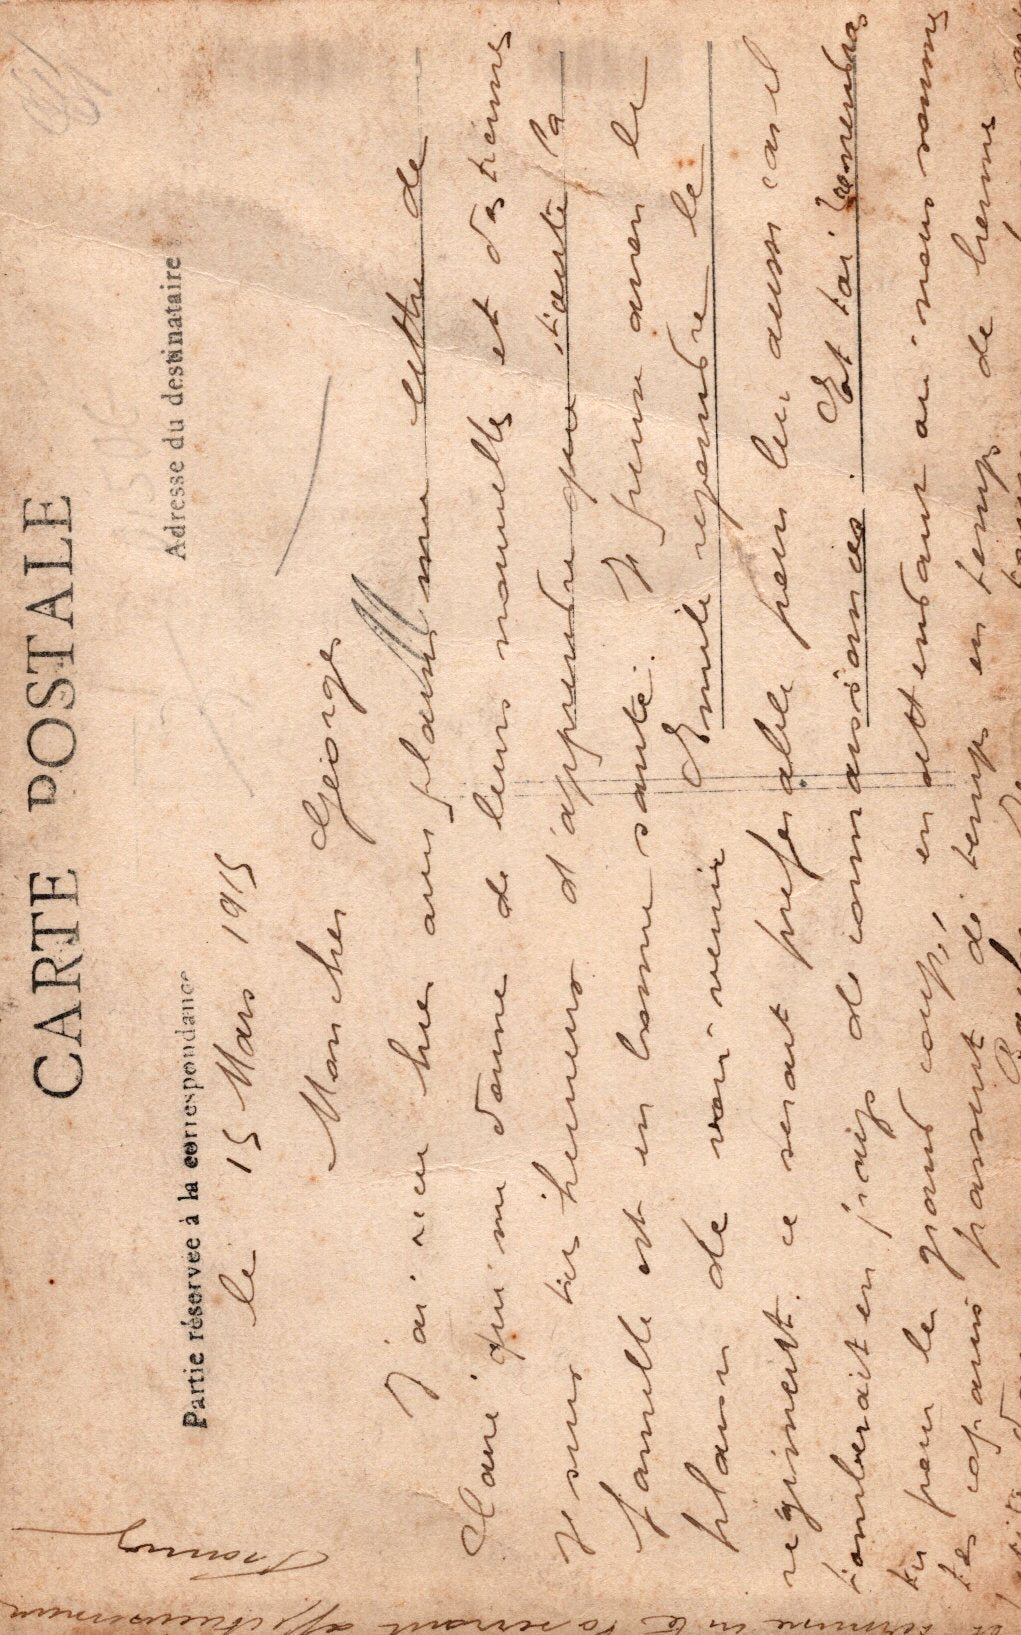 CARTE POSTALE
Partie réservée à la correspondance
Adresse du destinataire
le 15 Mars 1915
Mon cher Georges
J'ai reçu hier au soir une lettre de
Claire qui me donne de leurs nouvelles et des tiennes
Je suis très heureux d'apprendre que toute la
famille est en bonne santé. Je pense avoir le
plaisir de voir venir Emile rejoindre le
régiment. ce serait preferable pour lui aussi car il
tomberait en pays de connaissances. Et toi viendras
tu pour le grand coup, en attendant ici nous sommes
tes copains passent de temps en temps de bonnes
Francis
et termine en te la serrant affectueusement